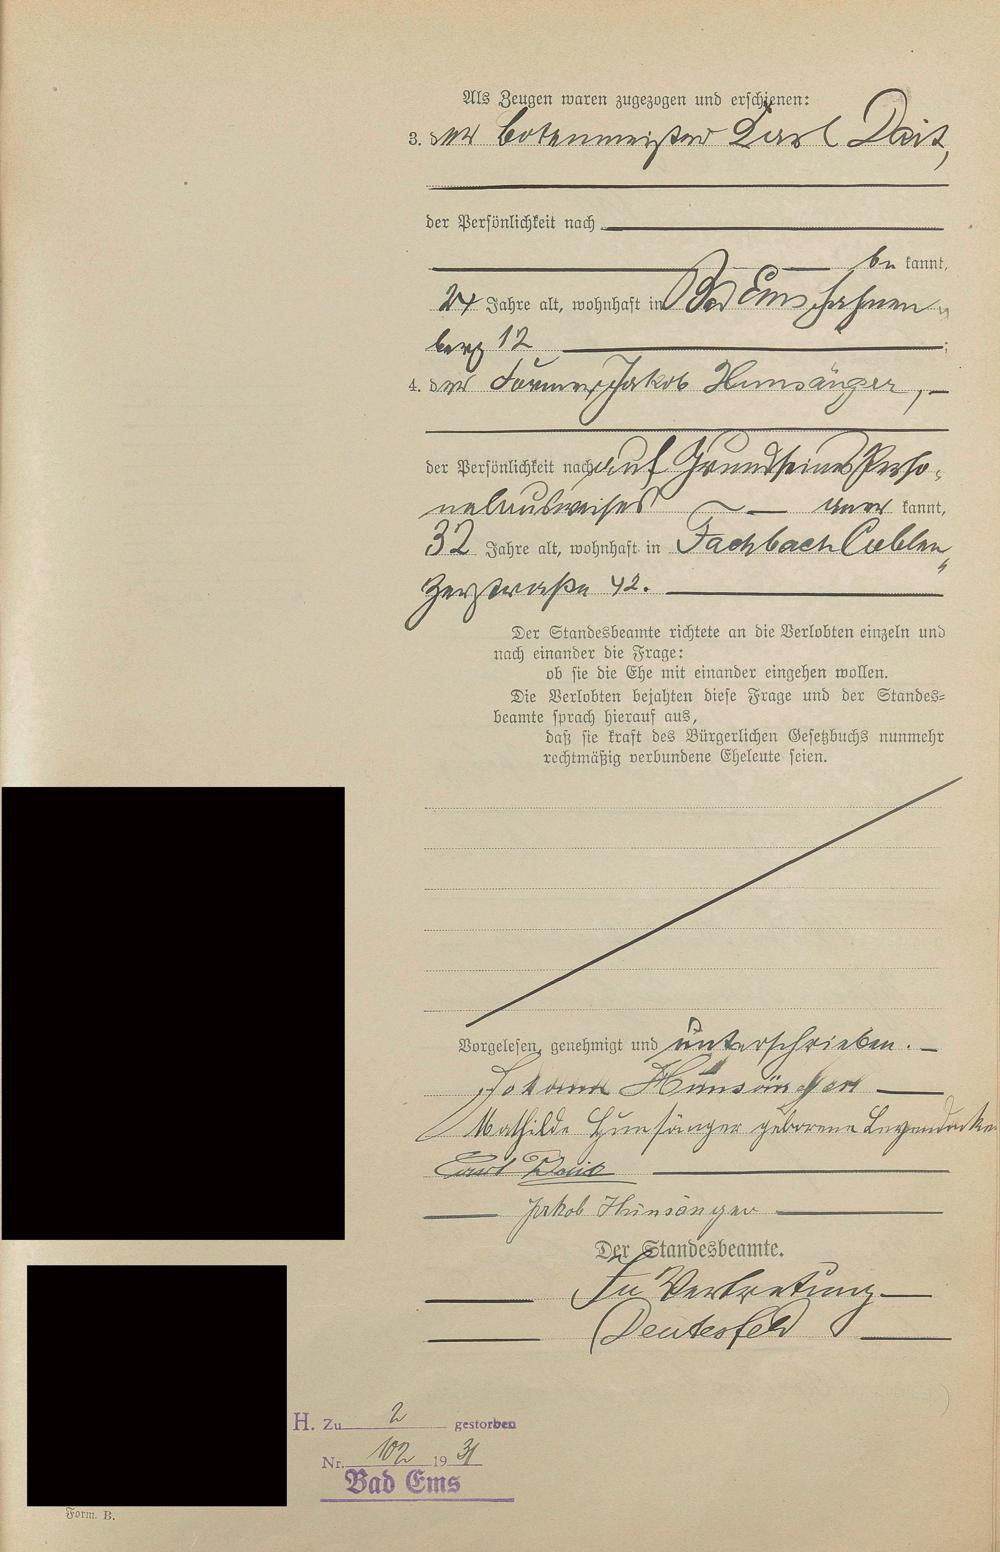 Als Zeugen waren zugezogen und erschienen:
3. der Botenmeister Karl Dait,
der Persönlichkeit nach
be kannt,
24 Jahre alt, wohnhaft in Bad Ems Hahnen-
berg 12 ;
4. der Former Jakob Hunsänger,
der Persönlichkeit nach auf Grund seines Perso-
nalausweises aner kannt,
32 Jahre alt, wohnhaft in Fachbach Coblen-
zerstraße 42.
Der Standesbeamte richtete an die Verlobten einzeln und
nach einander die Frage:
ob sie die Ehe mit einander eingehen wollen.
Die Verlobten bejahten diese Frage und der Standes-
beamte sprach hierauf aus,
daß sie kraft des Bürgerlichen Gesetzbuchs nunmehr
rechtmäßig verbundene Eheleute seien.
Vorgelesen, genehmigt und unterschrieben.
Johann Hunsänger
Mathilde Hunsänger geborene
Carl Dait
Jakob Hunsänger
Der Standesbeamte.
In Vertretung
Deutesfeld
H. Zu 2 gestorben
Nr. 102 19 31
Bad Ems
Form. B.